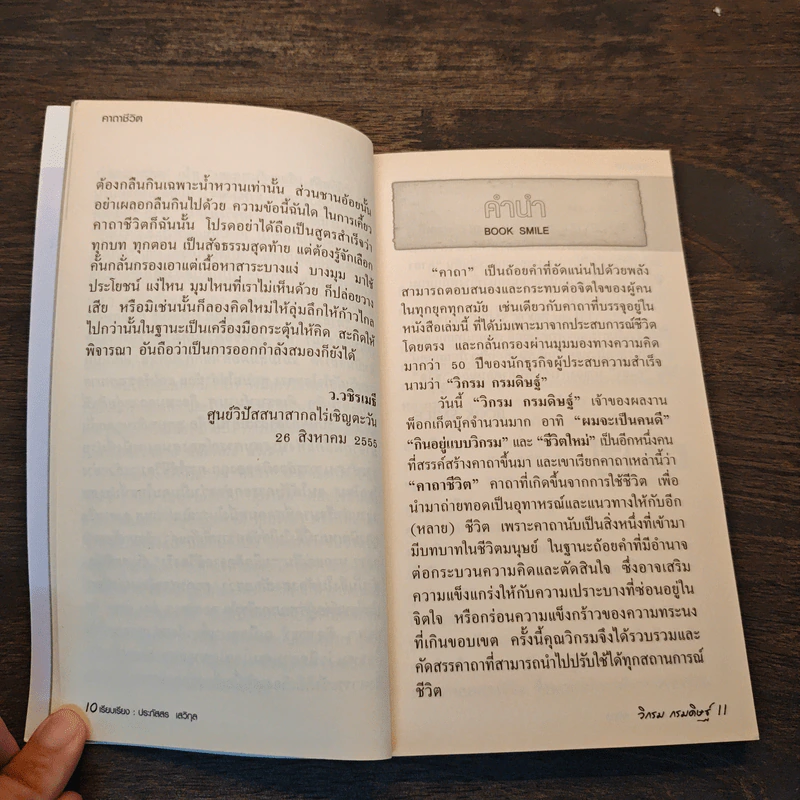 คาถาชีวิต
ต้องกลืนกินเฉพาะน้ำหวานเท่านั้น ส่วนชานอ้อยนั้น
อย่าเผลอกลืนกินไปด้วย ความข้อนี้ฉันใด ในการเคี้ยว
คาถาชีวิตก็ฉันนั้น โปรดอย่าได้ถือเป็นสูตรสำเร็จว่า
ทุกบท ทุกตอน เป็นสัจธรรมสุดท้าย แต่ต้องรู้จักเลือก
คั้นกลั่นกรองเอาแต่เนื้อหาสาระบางแง่ บางมุม มาใช้
ประโยชน์ แง่ไหน มุมไหนที่เราไม่เห็นด้วย ก็ปล่อยวาง
เสีย หรือมิเช่นนั้นก็ลองคิดใหม่ให้ลุ่มลึกให้ก้าวไกล
ไปกว่านั้นในฐานะเป็นเครื่องมือกระตุ้นให้คิด สะกิดให้
พิจารณา อันถือว่าเป็นการออกกำลังสมองก็ยังได้
ว.วชิรเมธี
ศูนย์วิปัสสนาสากลไร่เชิญตะวัน
26 สิงหาคม 2555
10 เรียบเรียง : ประภัสสร เสวิกุล
คำนำ
BOOK SMILE
“คาถา” เป็นถ้อยคำที่อัดแน่นไปด้วยพลัง
สามารถตอบสนองและกระทบต่อจิตใจของผู้คน
ในทุกยุคทุกสมัย เช่นเดียวกับคาถาที่บรรจุอยู่ใน
หนังสือเล่มนี้ ที่ได้บ่มเพาะมาจากประสบการณ์ชีวิต
โดยตรง และกลั่นกรองผ่านมุมมองทางความคิด
มากว่า 50 ปีของนักธุรกิจผู้ประสบความสำเร็จ
นามว่า “วิกรม กรมดิษฐ์”
วันนี้ “วิกรม กรมดิษฐ์” เจ้าของผลงาน
พ็อกเก็ตบุ๊คจำนวนมาก อาทิ “ผมจะเป็นคนดี”
“กินอยู่แบบวิกรม” และ “ชีวิตใหม่” เป็นอีกหนึ่งคน
ที่สรรค์สร้างคาถาขึ้นมา และเขาเรียกคาถาเหล่านี้ว่า
“คาถาชีวิต” คาถาที่เกิดขึ้นจากการใช้ชีวิต เพื่อ
นำมาถ่ายทอดเป็นอุทาหรณ์และแนวทางให้กับอีก
(หลาย) ชีวิต เพราะคาถานับเป็นสิ่งหนึ่งที่เข้ามา
มีบทบาทในชีวิตมนุษย์ ในฐานะถ้อยคำที่มีอำนาจ
ต่อกระบวนความคิดและตัดสินใจ ซึ่งอาจเสริม
ความแข็งแกร่งให้กับความเปราะบางที่ซ่อนอยู่ใน
จิตใจ หรือกร่อนความแข็งกร้าวของความทระนง
ที่เกินขอบเขต ครั้งนี้คุณวิกรมจึงได้รวบรวมและ
คัดสรรคาถาที่สามารถนำไปปรับใช้ได้ทุกสถานการณ์
ชีวิต
วิกรม กรมดิษฐ์ 11